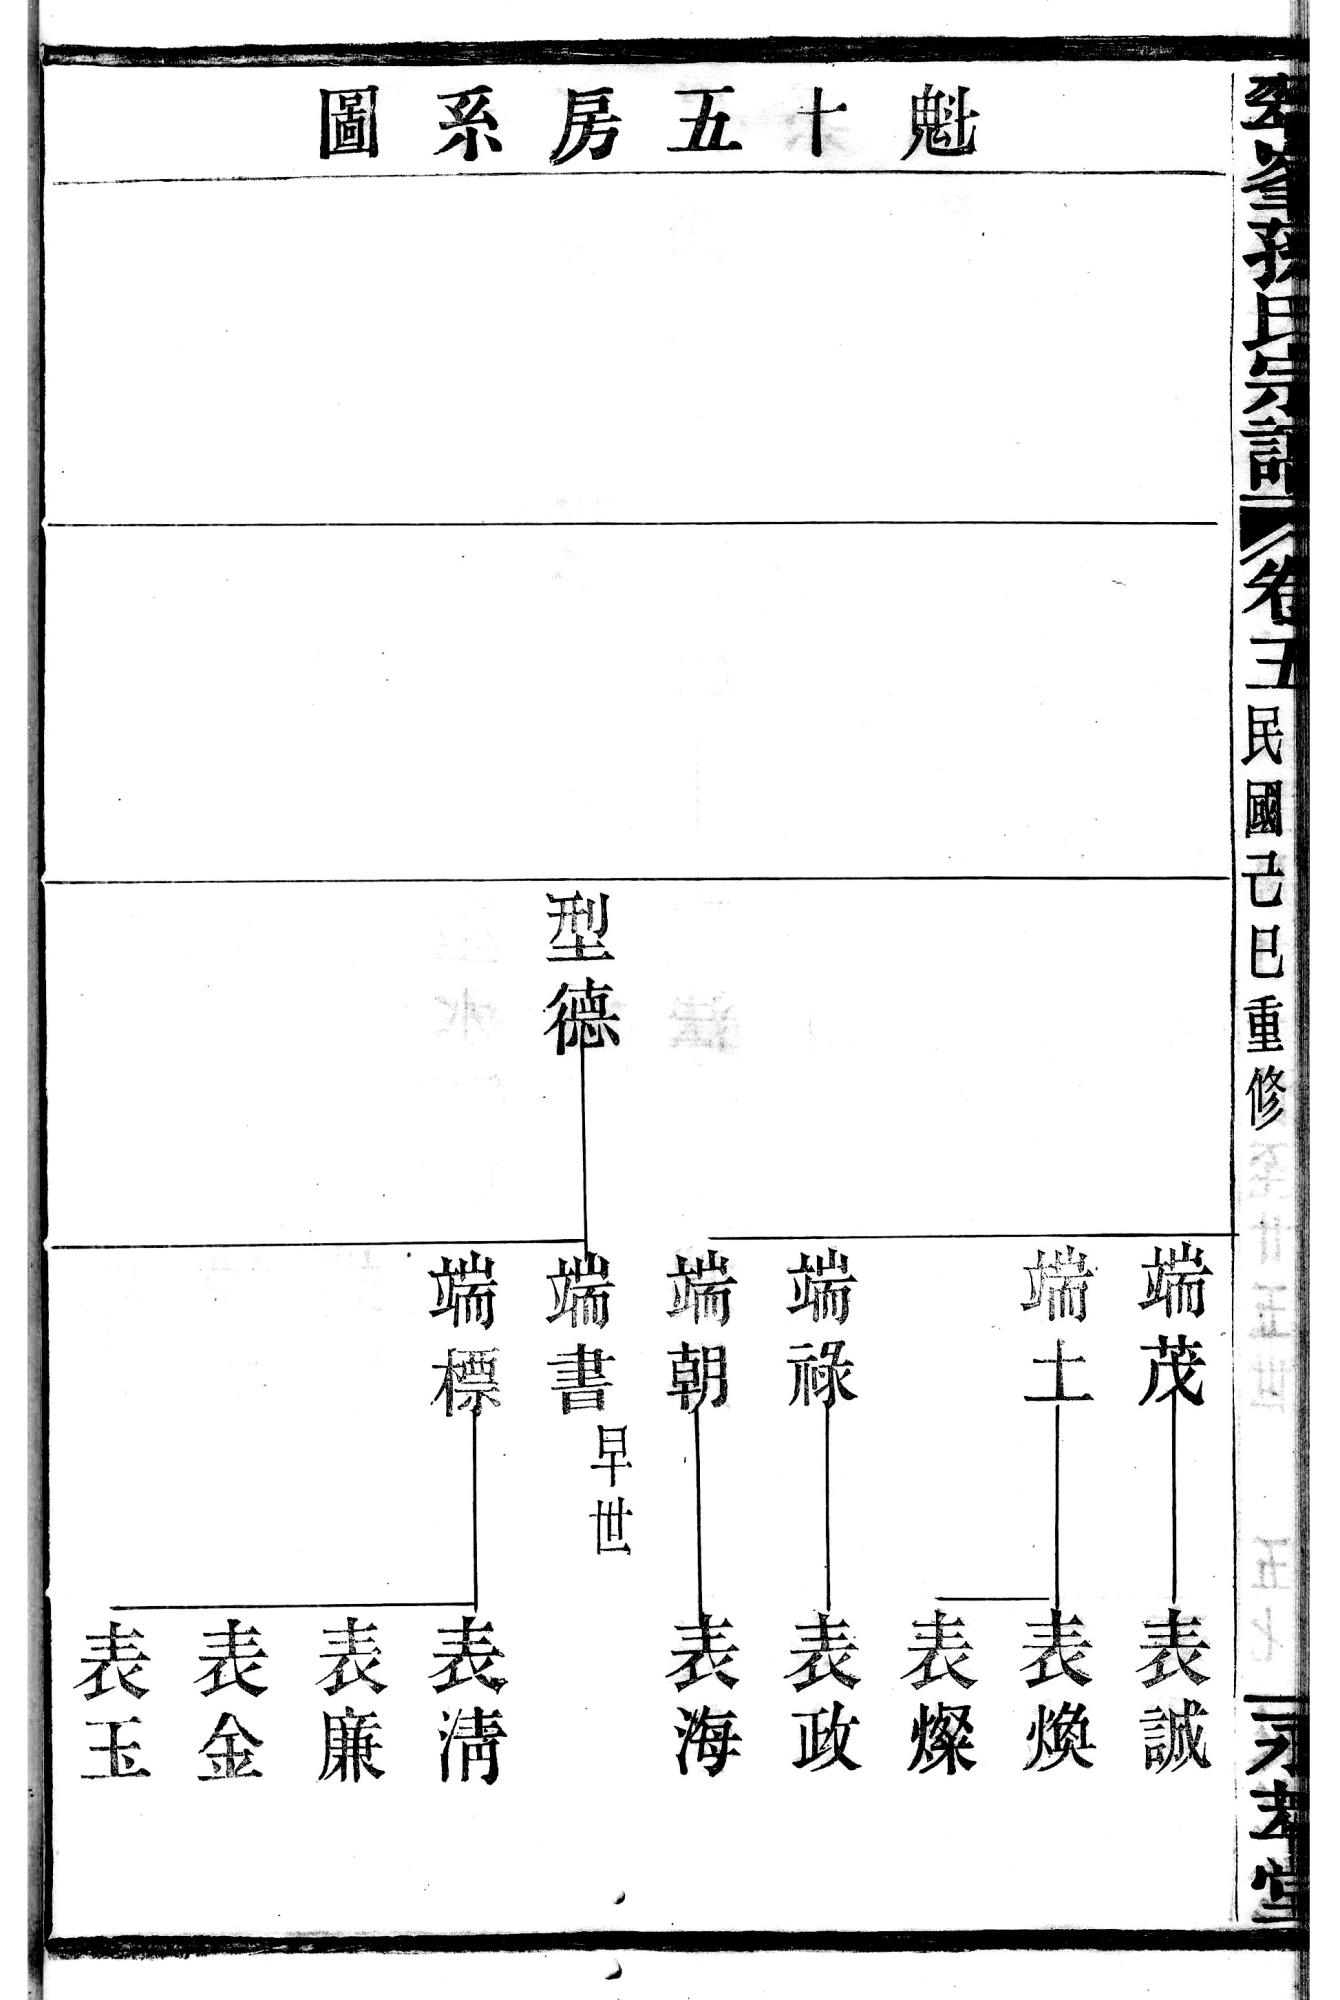 魁十五房系圖
孫氏宗譜
卷五
民國己巳重修
堂
型德
端茂
端土
端祿
端朝
端書
早世
端標
表誠
表煥
表燦
表政
表海
表淸
表廉
表金
表玉